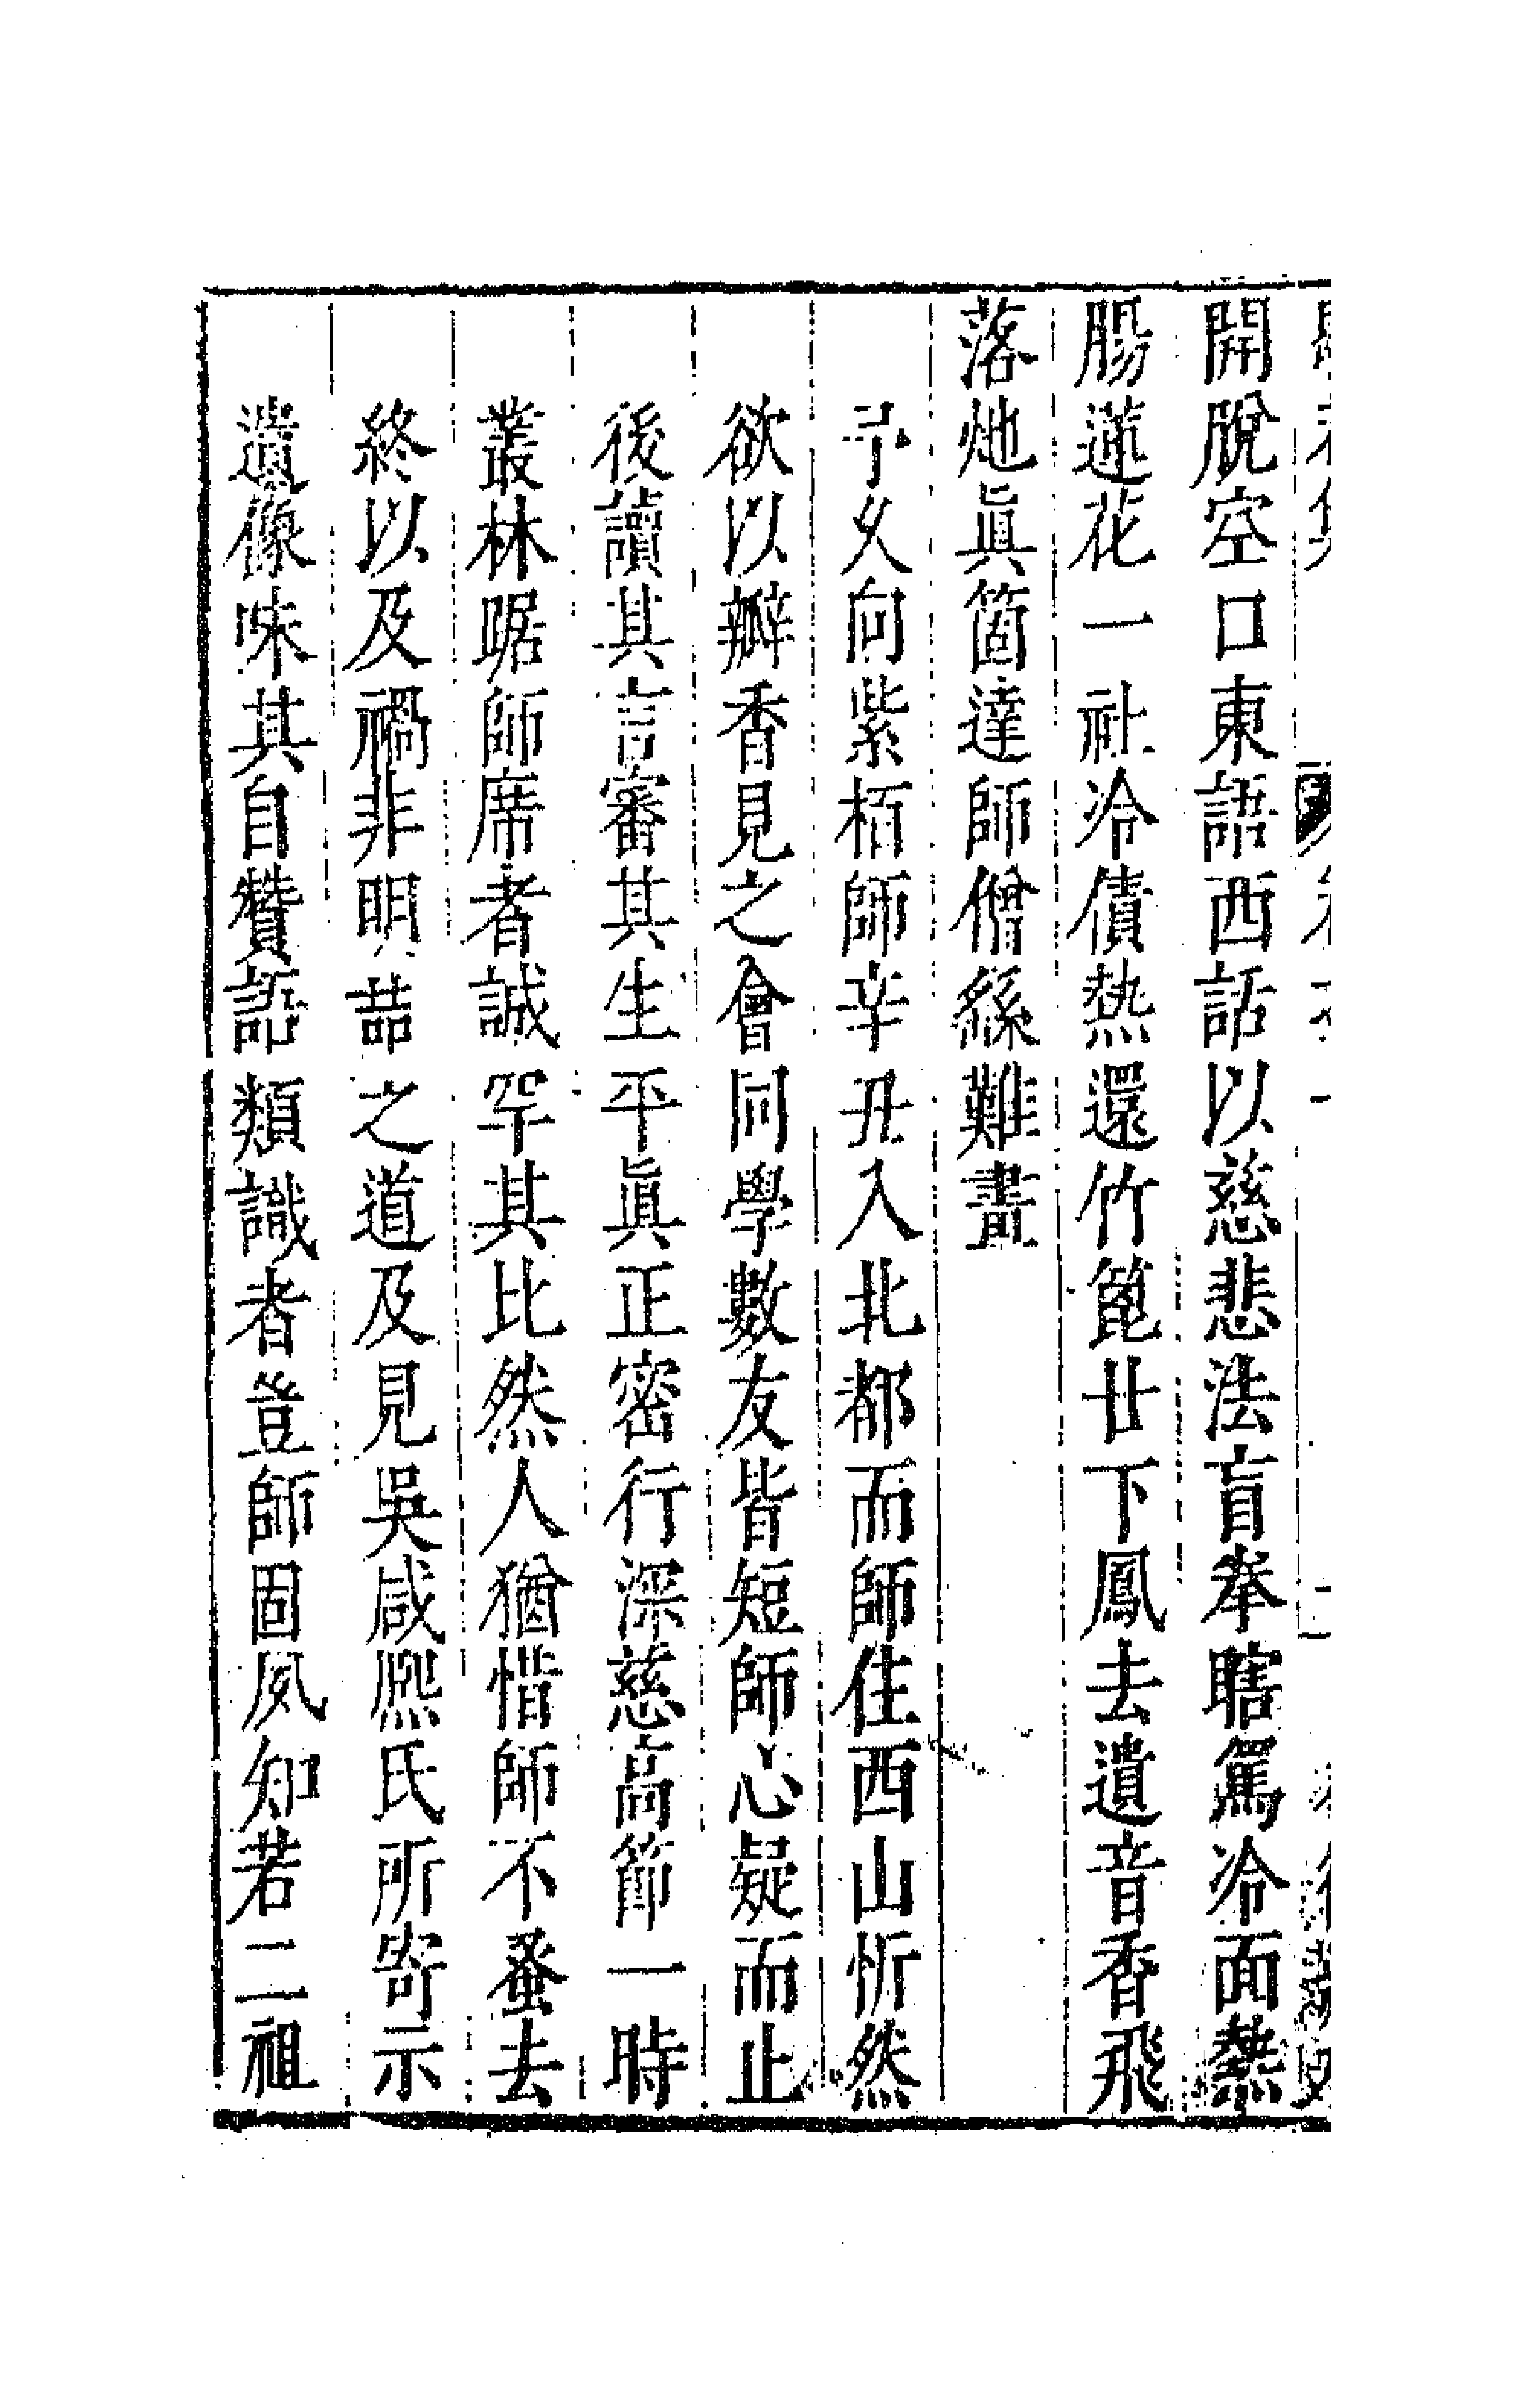 開脫空口東語西話以慈悲法盲拳瞎罵冷面熱
腸蓮花一社冷債熱還竹篦廿下鳳去遺音香飛
落灺眞箇達師僧繇難畫
予乆向紫栢師辛丑入北都而師住西山忻然
欲以瓣香見之會同學數友皆短師心疑而止
後讀其言審其生平眞正密行深慈高節一時
叢林踞師席者誠罕其比然人猶惜師不蚤去
終以及禍非明喆之道及見吳咸熈氏所寄示
遺像味其自贊語類識者豈師固夙知若二祖